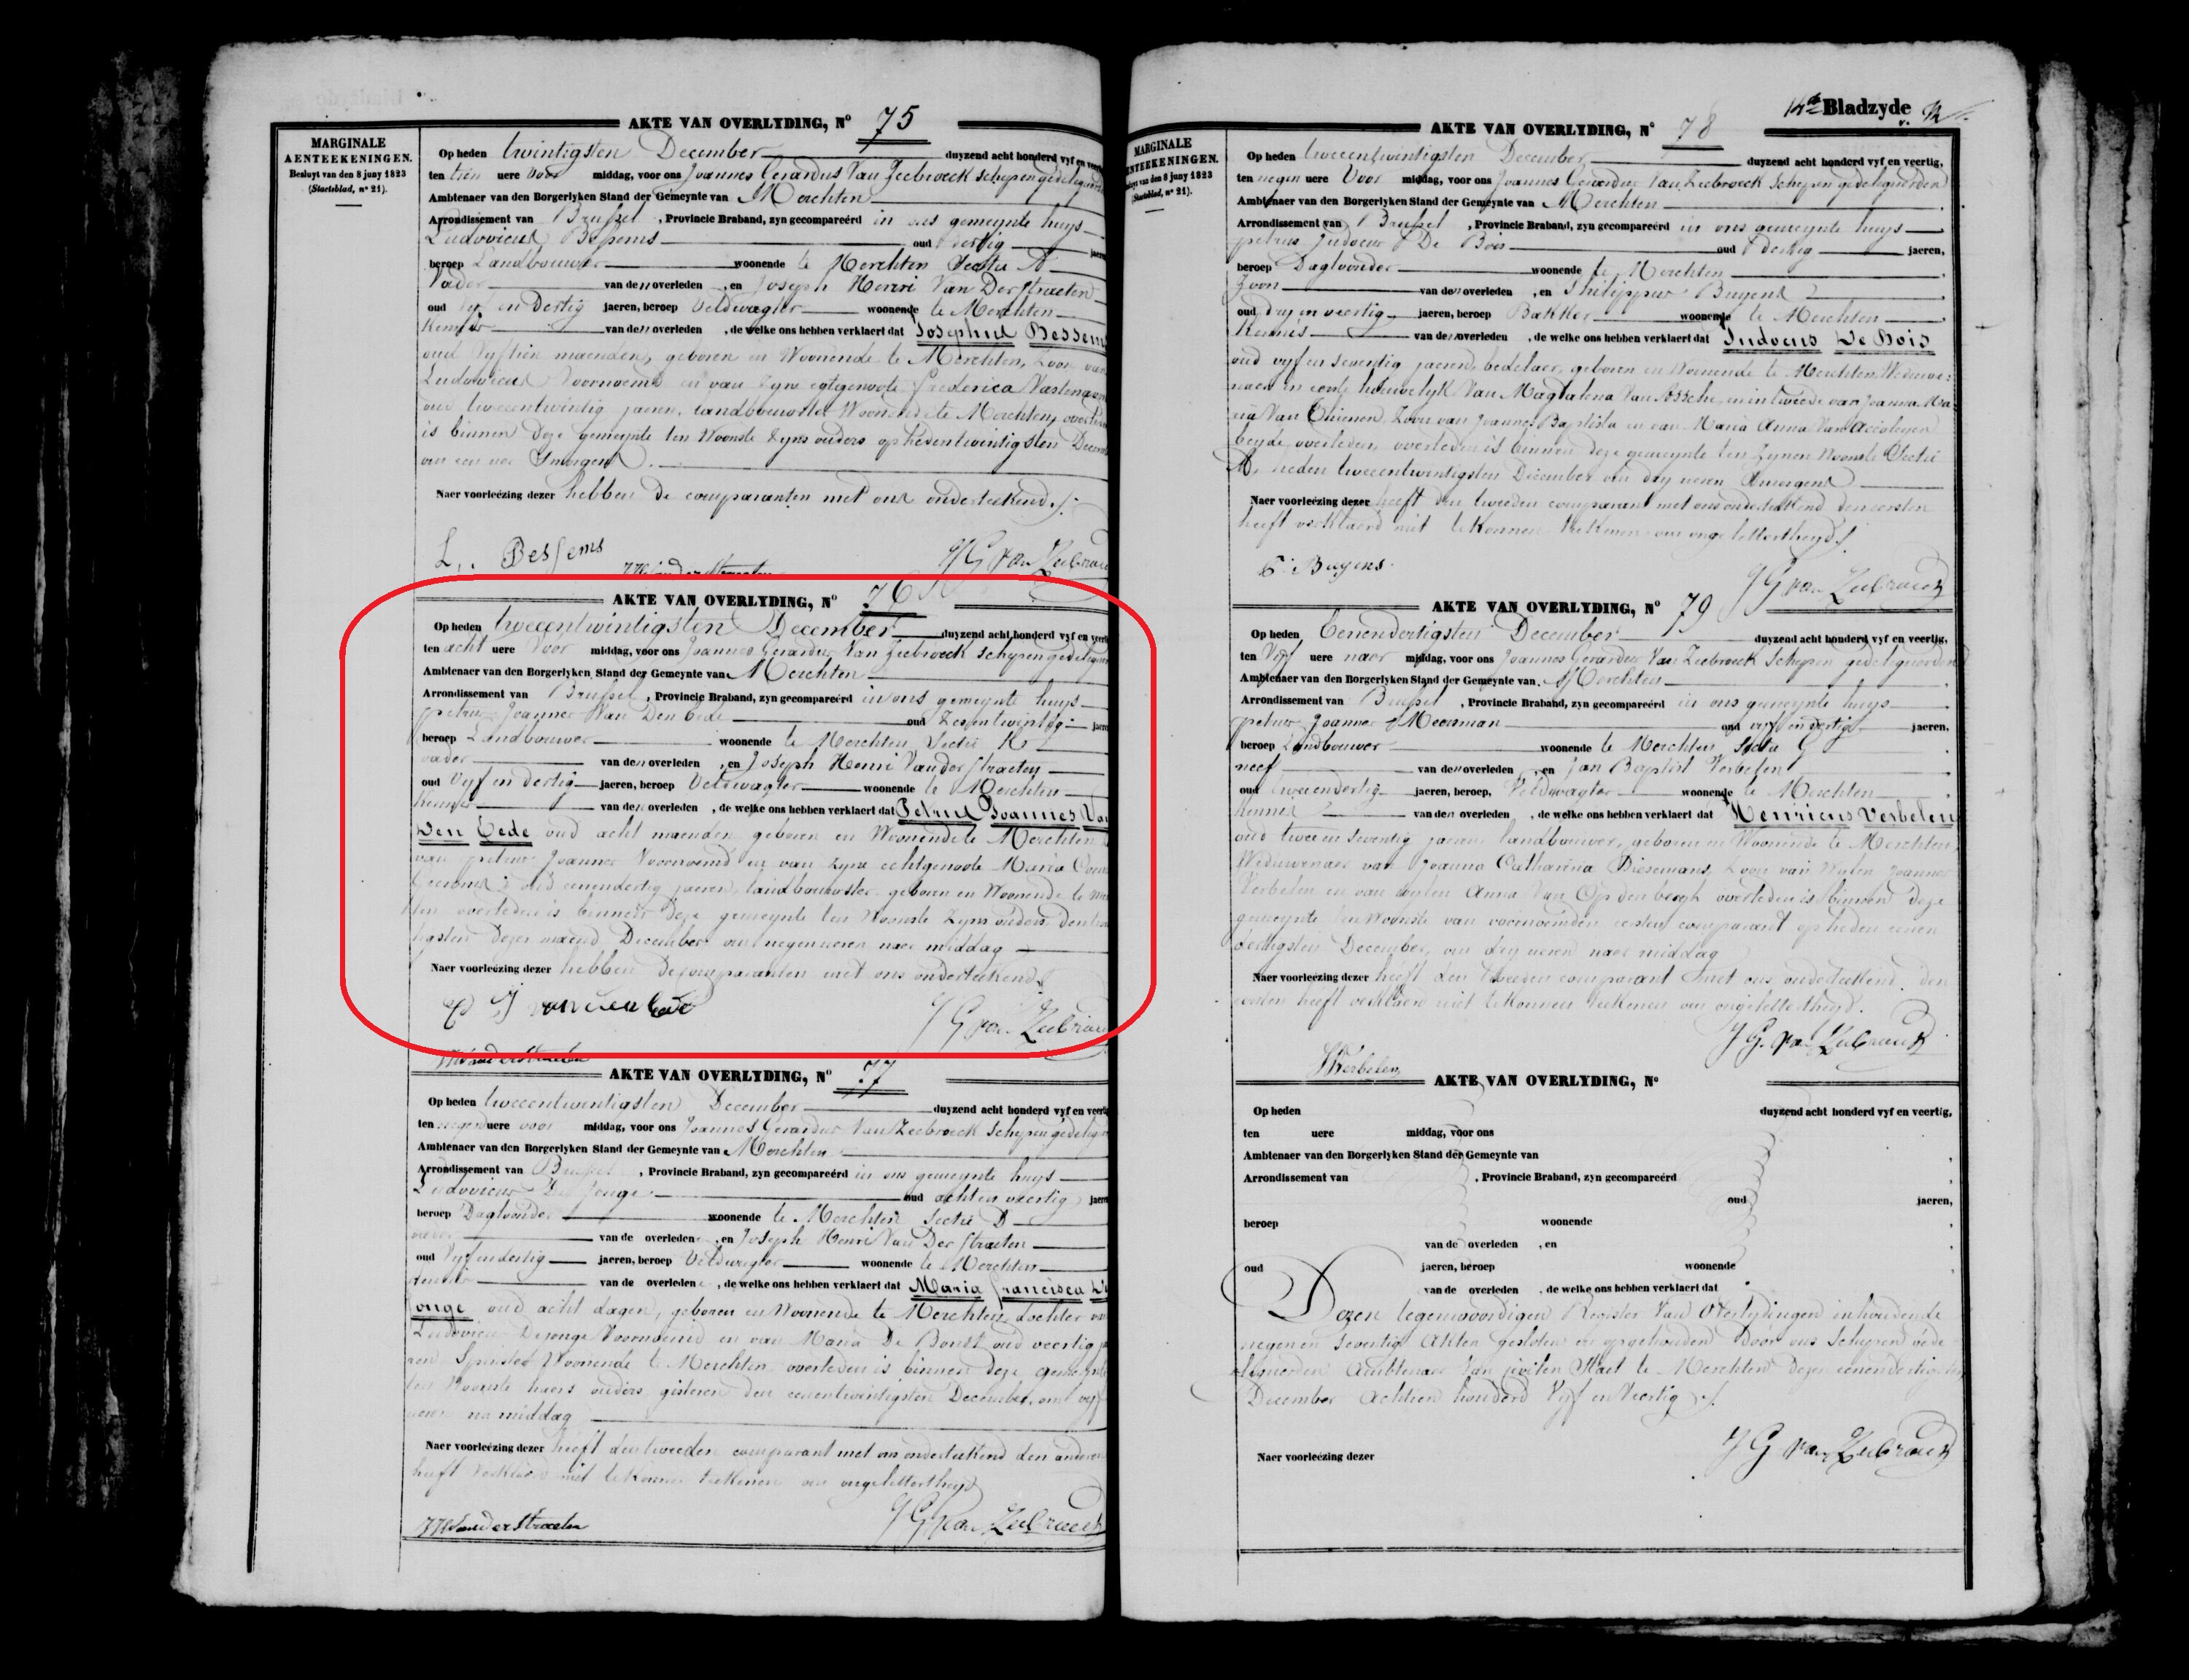 MARGINALE
AENTEEKENINGEN.
Besluyt van den 8 juny 1823
(Staetsblad, n° 21).
AKTE VAN OVERLYDING, N° 75
Op heden twintigsten December duyzend acht honderd vyf en
ten tien uere voor middag, voor ons Joannes Gerardus Van Zeebroeck schepen gedelegueerd
Ambtenaer van den Borgerlyken Stand der Gemeynte van Merchten
Arrondissement van Brussel, Provincie Braband, zyn gecompareérd in ons gemeynte huys
Ludovicus Bessems oud dertig jaeren
beroep Landbouwer woonende te Merchten Sectie
Vader van den overleden, en Joseph Henri Van Der Straeten
oud vyf en dertig jaeren, beroep Veldwagter woonende te Merchten
Kennis van den overleden, de welke ons hebben verklaert dat Josephus Bessems
oud vyftien maenden, geboren en Woonende te Merchten, Zoon van
Ludovicus Voornoemd en van zyne egtgenoote
oud tweeentwintig jaeren, landbouwster Woonende te Merchten, overleden
is binnen deze gemeynte ten Woonste zyns ouders op heden twintigsten Decem
om een uer Smorgens.
Naer voorleézing dezer hebben de comparanten met ons onderteekend./.
L. Bessems
JHVanderstraeten
JG van Zeebroeck
AKTE VAN OVERLYDING, N° 76
Op heden tweeentwintigsten December duyzend acht honderd vyf en veert
ten acht uere Voor middag, voor ons Joannes Gerardus Van Zeebroeck schepen gedelegueer
Ambtenaer van den Borgerlyken Stand der Gemeynte van Merchten
Arrondissement van Brussel, Provincie Braband, zyn gecompareérd in ons gemeynte huys
petrus Joannes Van Den Eede oud Zesentwintig jaeren
beroep Landbouwer woonende te Merchten Sectie
vader van den overleden, en Joseph Henri Van der Straeten
oud Vyf en dertig jaeren, beroep Veldwagter woonende te Merchten
Kennis van den overleden, de welke ons hebben verklaert dat Petrus Joannes Van
Den Eede oud acht maenden geboren en Woonende te Merchten
van petrus Joannes Voornoemd en van zyne echtgenoote Maria
oud eenendertig jaeren, landbouwster geboren en Woonende te Mer
ten overleden is binnen deze gemeynte ten Woonste zyns ouders, den
tigsten dezer maend December om negen ueren naer middag
Naer voorleézing dezer hebben de comparanten met ons onderteekend./
P J vandeneede
JG van Zeebroeck
JHVanderstraeten
AKTE VAN OVERLYDING, N° 77
Op heden tweeentwintigsten December duyzend acht honderd vyf en veert
ten negen uere voor middag, voor ons Joannes Gerardus Van Zeebroeck schepen gedelegu
Ambtenaer van den Borgerlyken Stand der Gemeynte van Merchten
Arrondissement van Brussel, Provincie Braband, zyn gecompareérd in ons gemeynte huys
Ludovicus De Jonge oud achten veertig jaeren
beroep Daglooner woonende te Merchten Sectie D
vader van de overledene, en Joseph Henri Van Der Straeten
oud Vyfendertig jaeren, beroep Veldwagter woonende te Merchten
Kennis van de overledene, de welke ons hebben verklaert dat Maria Francisca De
Jonge oud acht dagen, geboren en Woonende te Merchten, dochter van
Ludovicus Dejonge Voornoemd en van Maria De Bondt oud veertig ja
ren, Spinster Woonende te Merchten overleden is binnen deze gemeynte
ten Woonste haers ouders, gisteren den eenentwintigsten December, om vyf
ueren namiddag
Naer voorleézing dezer heeft den tweeden comparant met ons onderteekend den anderen
heeft verklaerd niet te konnen teekenen om ongeletterthyd
JHVanderstraeten
JG van Zeebroeck
14de Bladzyde
MARGINALE
AENTEEKENINGEN.
Besluyt van den 8 juny 1823
(Staetsblad, n° 21).
AKTE VAN OVERLYDING, N° 78
Op heden tweeentwintigsten December duyzend acht honderd vyf en veertig,
ten negen uere Voor middag, voor ons Joannes Gerardus Van Zeebroeck Schepen gedelegueerden
Ambtenaer van den Borgerlyken Stand der Gemeynte van Merchten
Arrondissement van Brussel, Provincie Braband, zyn gecompareérd in ons gemeynte huys
petrus Judocus De Bois oud dertig jaeren,
beroep Daglooner woonende te Merchten
Zoon van den overleden, en Philippus Buyens
oud dry en veertig jaeren, beroep Bakker woonende te Merchten
Kennis van den overleden, de welke ons hebben verklaert dat Judocus De Bois
oud vyf en seventig jaeren, bedelaer, geboren en Woonende te Merchten Weduwe
naer in eerste houwelyk Van Magdalena Van Assche, en in tweede van Joanna Ma
ria Van Zoon van Joannes Baptista en van Maria Anna Van
beyde overleden, overleden is binnen deze gemeynte ten zynen Woonste Sectie
heden tweeentwintigsten December om dry ueren Smorgens
Naer voorleézing dezer heeft den tweeden comparant met ons onderteekend den eersten
heeft verklaerd niet te konnen teekenen om ongeletterthyd./.
P. Buyens
JG van Zeebroeck
AKTE VAN OVERLYDING, N° 79
Op heden Eenendertigsten December duyzend acht honderd vyf en veertig,
ten Vyf uere naer middag, voor ons Joannes Gerardus Van Zeebroeck Schepen gedelegueerden
Ambtenaer van den Borgerlyken Stand der Gemeynte van Merchten
Arrondissement van Brussel, Provincie Braband, zyn gecompareérd in ons gemeynte huys
petrus Joannes Meersman oud vyf en dertig jaeren,
beroep Landbouwer woonende te Merchten, Sectie
neef van den overleden, en Jan Baptist Verbelen
oud tweeendertig jaeren, beroep, Veldwagter woonende te Merchten
Kennis van den overleden, de welke ons hebben verklaert dat Henricus Verbelen
oud tweeen seventig jaeren, landbouwer, geboren en Woonende te Merchten,
Weduwenaer van Joanna Catharina Biesemans, Zoon van Wylen Joannes
Verbelen en van wylen Anna Van Opdenbergh overleden is binnen deze
gemeynte ten Woonste van voornoemden eersten comparant op heden eenen
dertigsten December, om dry ueren naer middag
Naer voorleézing dezer heeft den tweeden comparant met ons onderteekend, den
eersten heeft verklaerd niet te konnen teekenen om ongeletterthyd.
JG. van Zeebroeck
JBVerbelen
AKTE VAN OVERLYDING, N°
Op heden duyzend acht honderd vyf en veertig,
ten uere middag, voor ons
Ambtenaer van den Borgerlyken Stand der Gemeynte van
Arrondissement van , Provincie Braband, zyn gecompareérd
oud jaeren,
beroep woonende
van de overleden , en
oud jaeren, beroep woonende
van de overleden , de welke ons hebben verklaert dat
Dezen tegenwoordigen Register Van Overlydingen inhoudende
negen en seventig Akten gesloten en opgehouden Door ons Schepen gede
legueerden Ambtenaer Van civilen Staet te Merchten dezen eenendertigsten
December achtien honderd Vyf en Veertig./.
JG van Zeebroeck
Naer voorleézing dezer